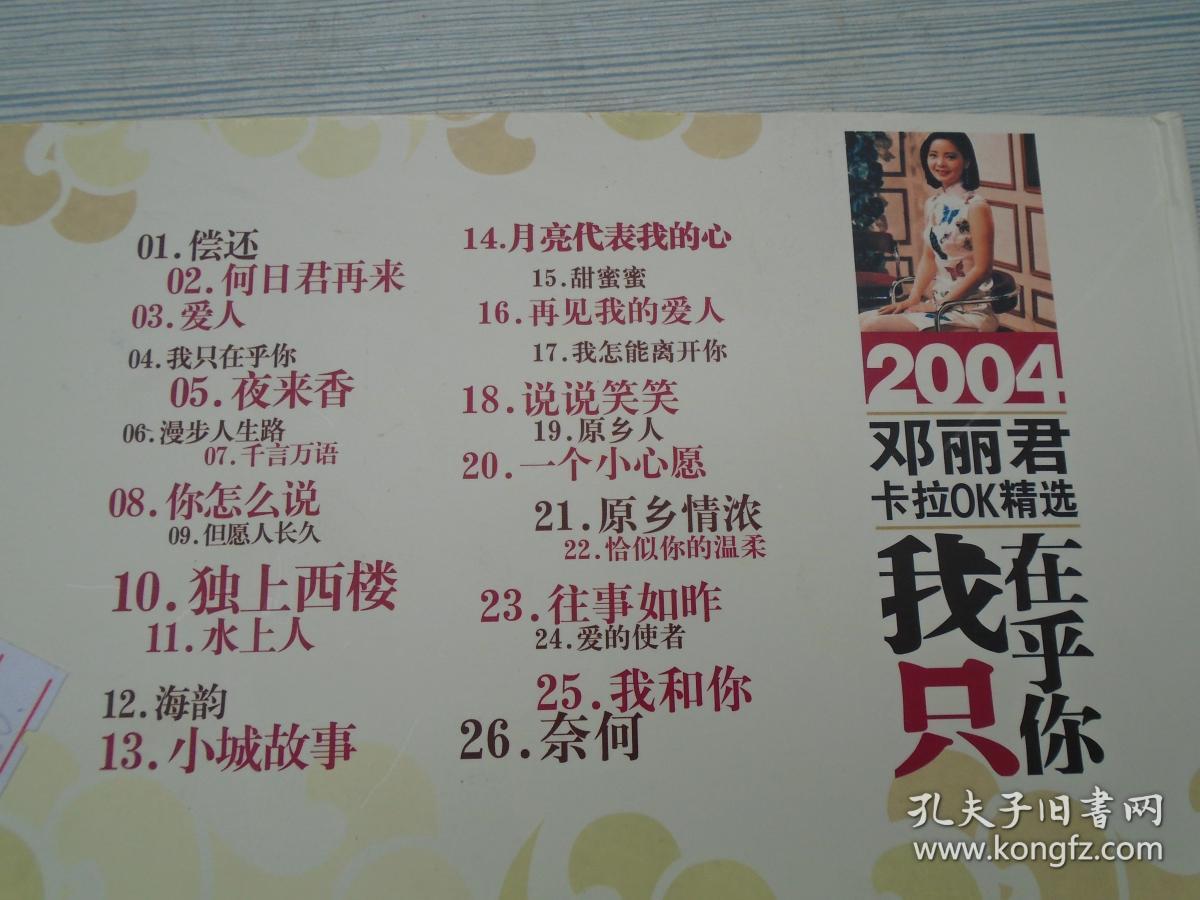 01.偿还
02.何日君再来
03.爱人
04.我只在乎你
05.夜来香
06.漫步人生路
07.千言万语
08.你怎么说
09.但愿人长久
10.独上西楼
11.水上人
12.海韵
13.小城故事
14.月亮代表我的心
15.甜蜜蜜
16.再见我的爱人
17.我怎能离开你
18.说说笑笑
19.原乡人
20.一个小心愿
21.原乡情浓
22.恰似你的温柔
23.往事如昨
24.爱的使者
25.我和你
26.奈何
2004
邓丽君
卡拉OK精选
我只在乎你
孔夫子旧书网
www.kongfz.com